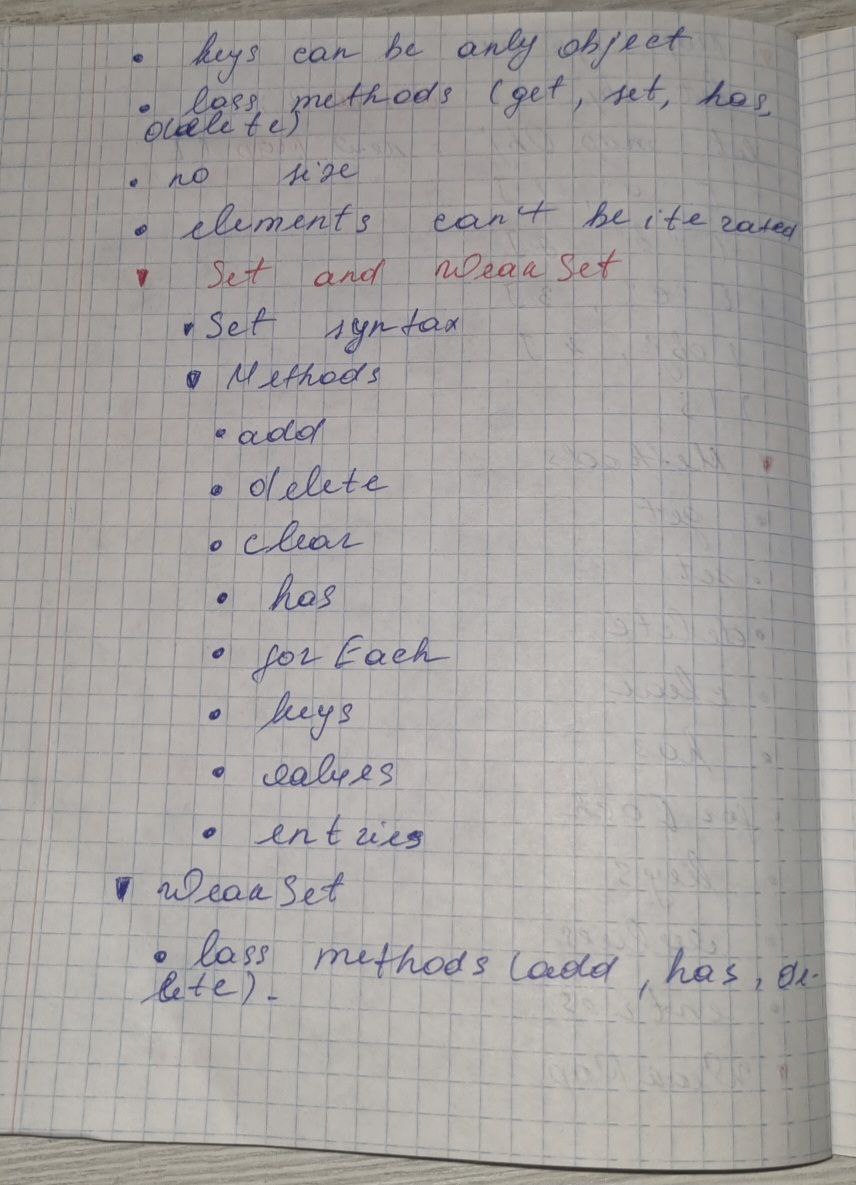 • keys can be only object
• lass methods (get, set, has,
delete)
• no size
• elements can't be iterated
▾ Set and Weak Set
• Set syntax
▾ Methods
• add
• delete
• clear
• has
• for Each
• keys
• values
• entries
▾ Weak Set
• lass methods (add, has, de-
lete).